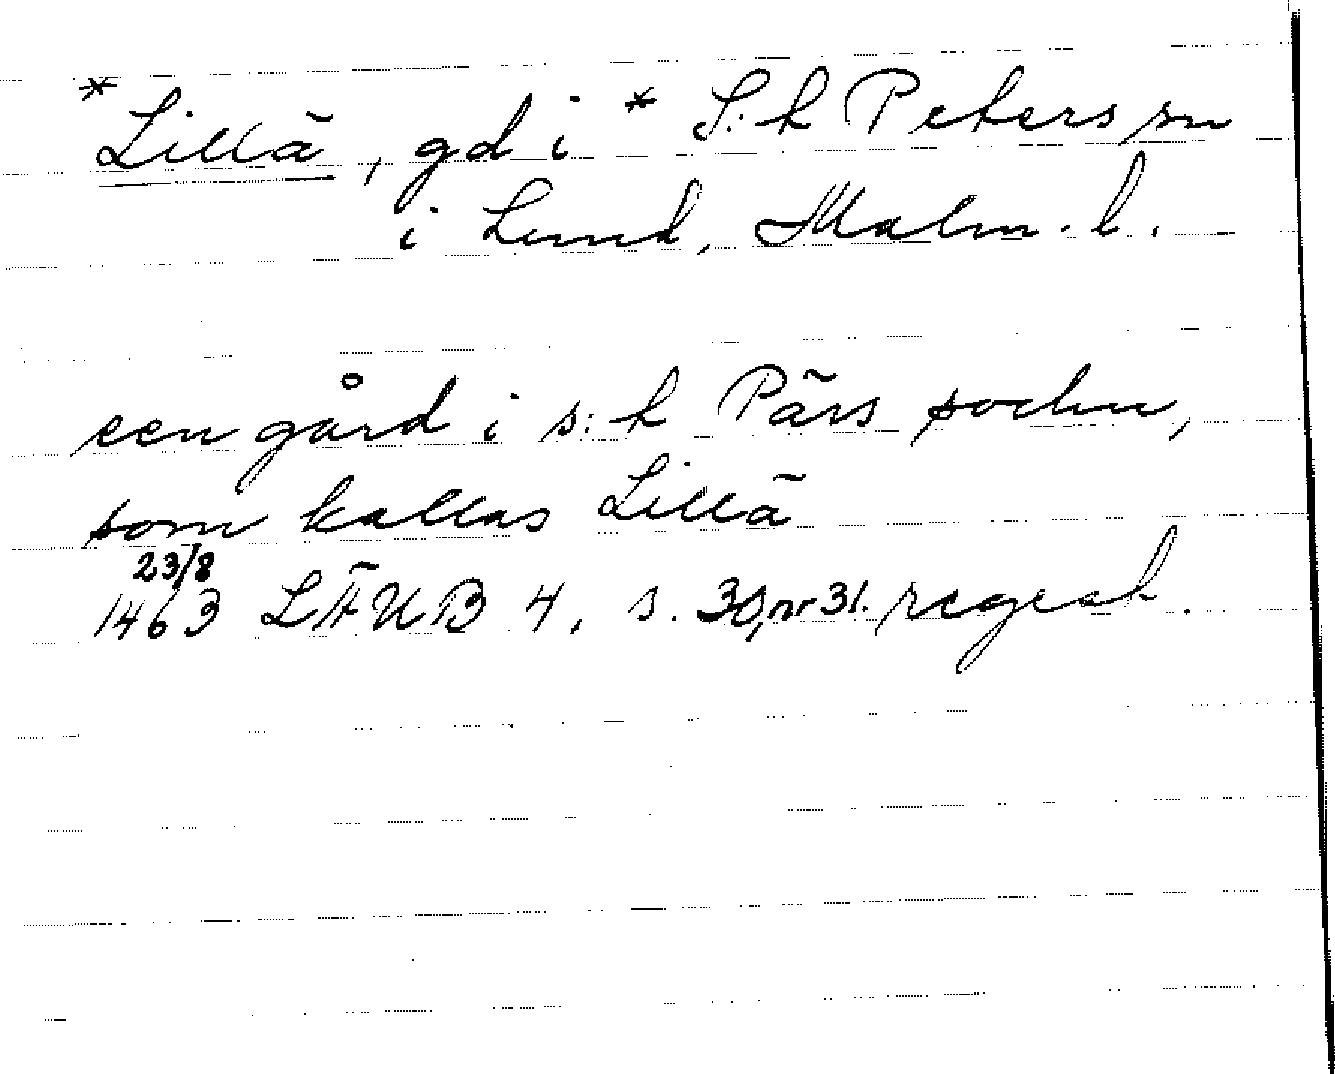 *Lillä, gd i *S:t Peters sn
i Lund, Malm. l.
een gård i s:t Pärs sochn,
som kallas Lillä
23/8
1463 LÄUB 4, s. 30, nr 31. regest.